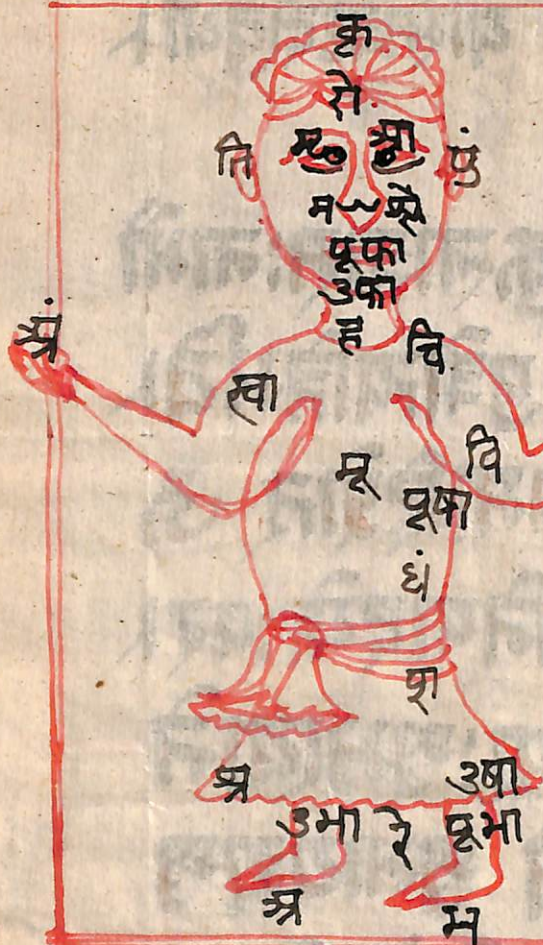 कृ
रो
ति मृ आ पुं
म श्ले
पूफा
उफा
ह चि
स्वा
मू वि
पूषा
धं
श
उषा
उभा रे पूभा
भ